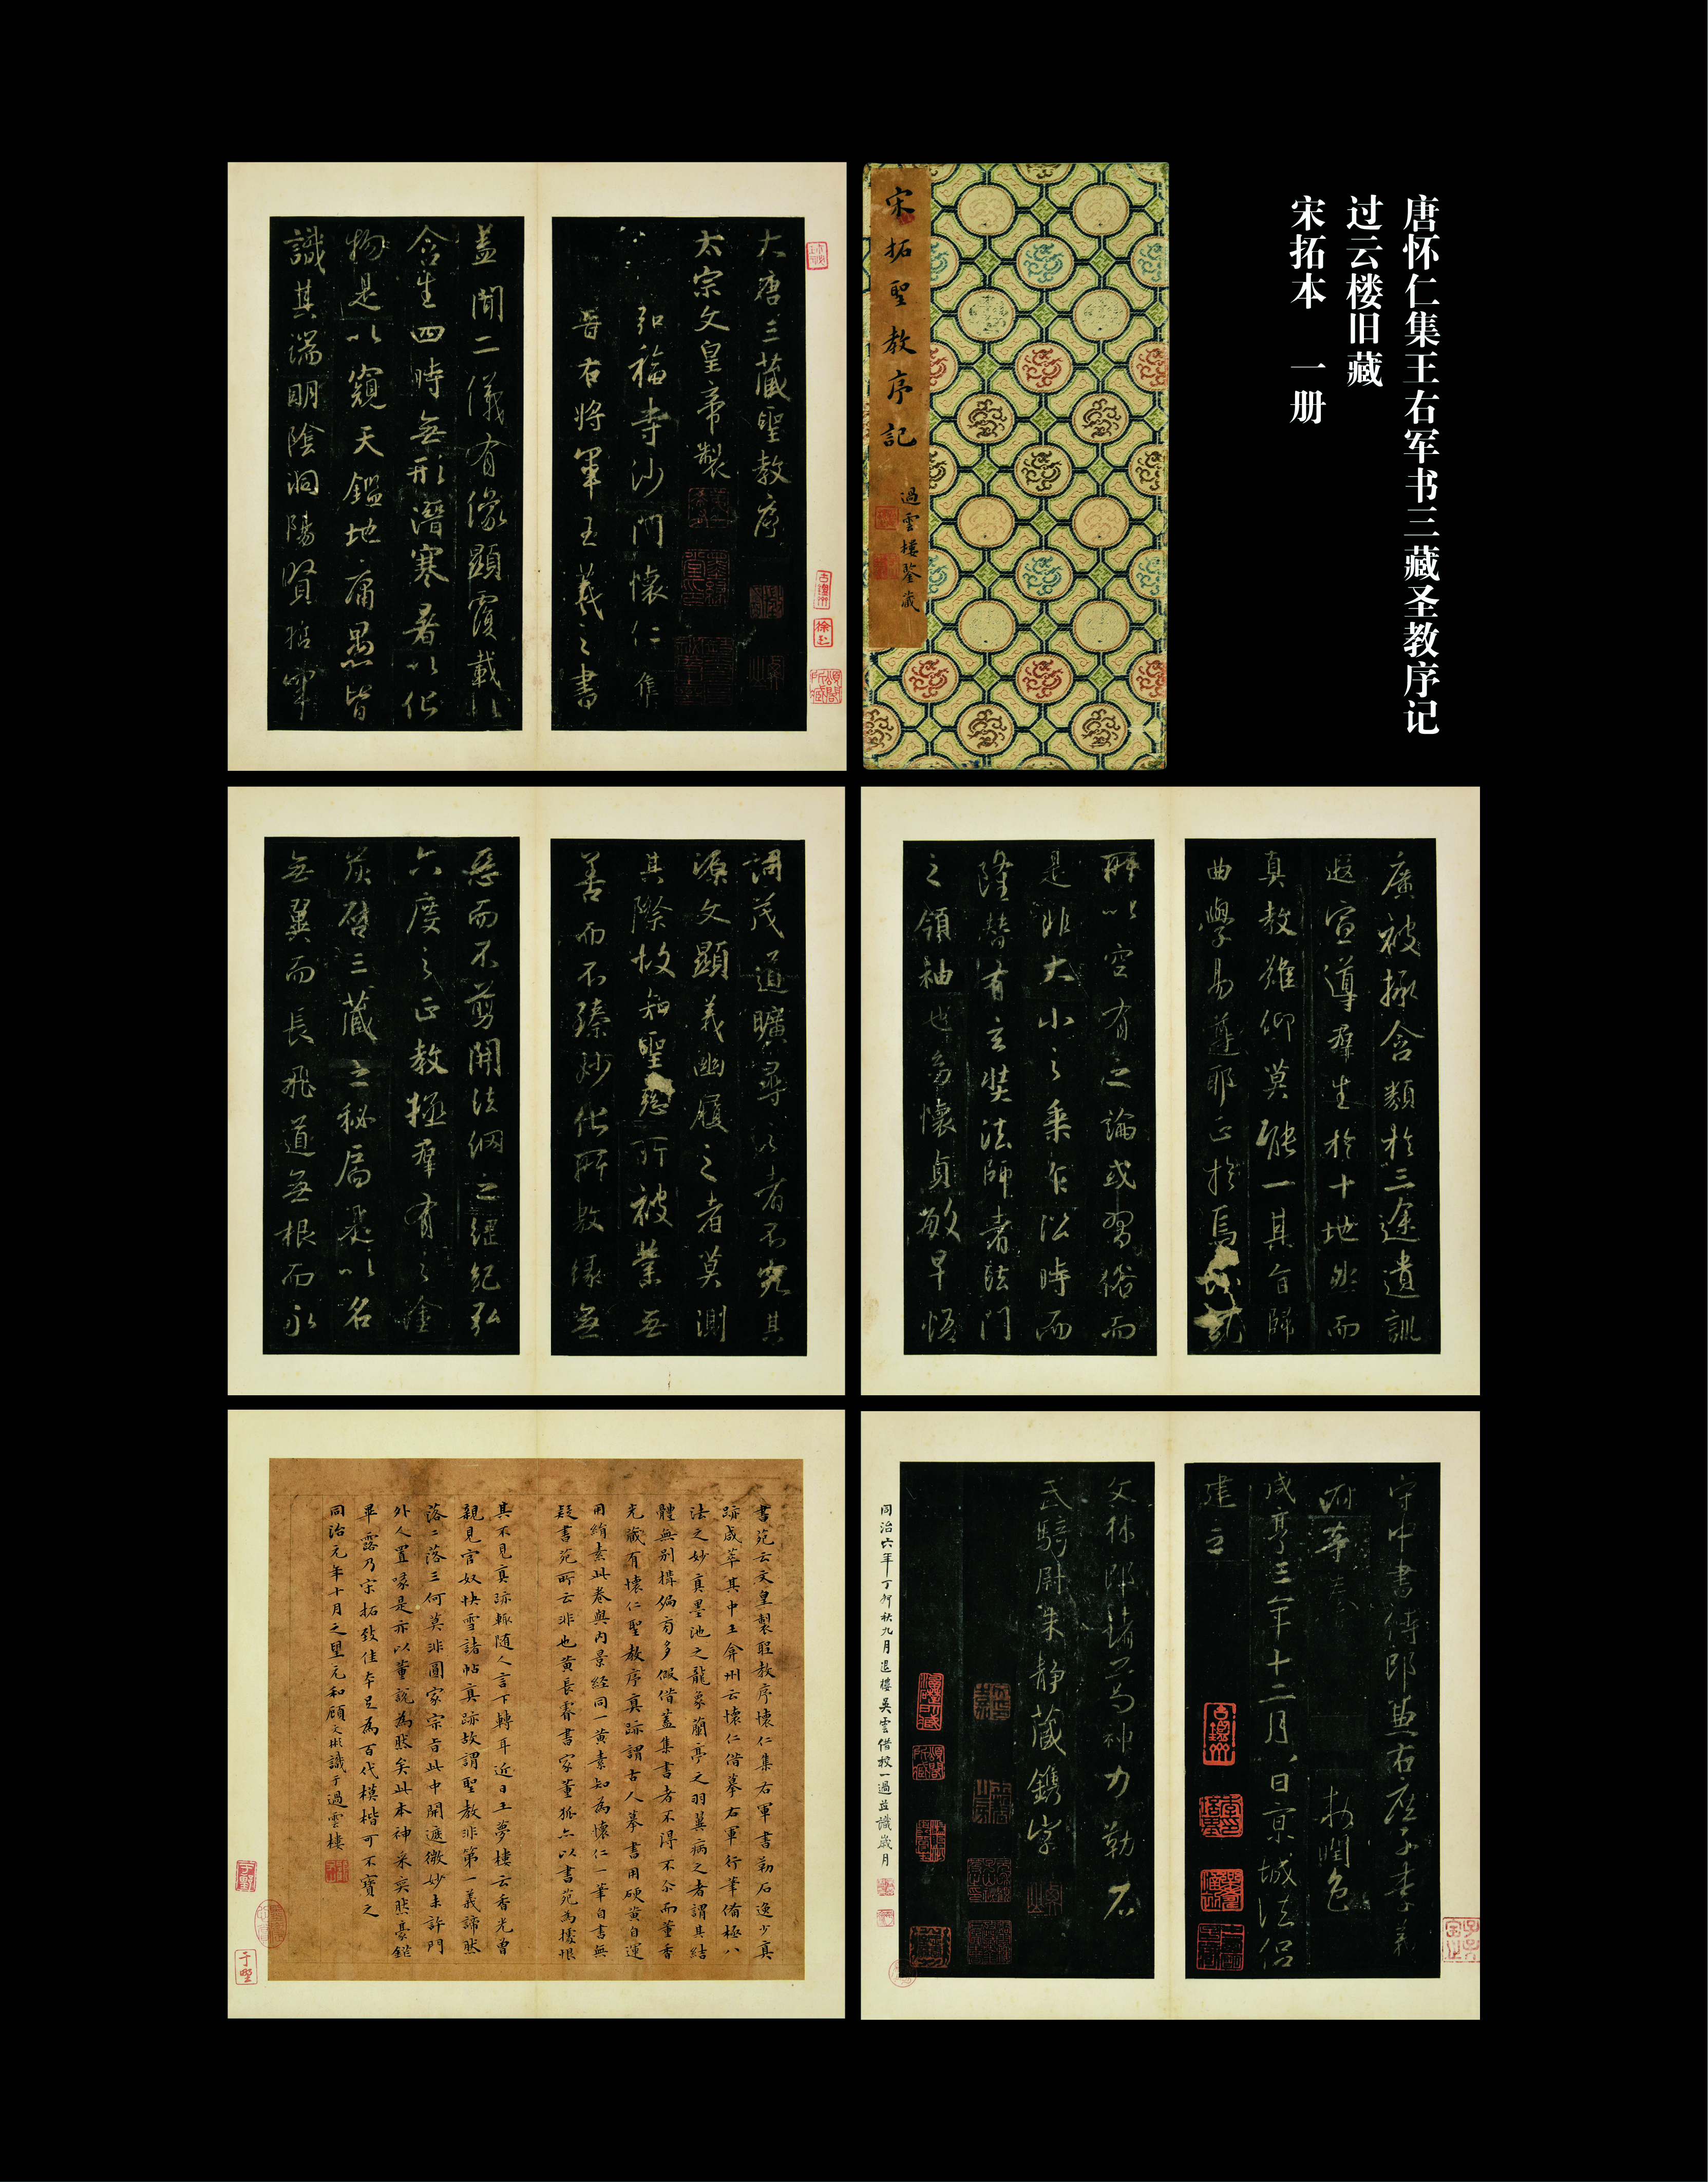 唐怀仁集王右军书三藏圣教序记
过云楼旧藏
宋拓本 一册
宋拓聖教序記
過雲樓鑒藏
大唐三藏聖教序
太宗文皇帝製
弘福寺沙門懷仁集
晉右將軍王羲之書
蓋聞二儀有像顯覆載以
含生四時無形潛寒暑以化
物是以窺天鑑地庸愚皆
識其端明陰洞陽賢哲罕
廣被拯含類於三途遺訓
遐宣導群生於十地然而
真教難仰莫能一其旨歸
曲學易遵耶正於焉
所以空有之論或習俗而
是非大小之乘乍沿時而
隆替有玄奘法師者法門
之領袖也幼懷貞敏早悟
詞茂道曠尋之者不究其
源文顯義幽履之者莫測
其際故知聖慈所被業無
善而不臻妙化所敷緣無
惡而不剪開法網之綱紀弘
六度之正教拯群有之塗
炭啓三藏之秘扃是以名
無翼而長飛道無根而永
守中書侍郎兼右庶子李義
府等奉 敕潤色
咸亨三年十二月八日京城法侶
建立
文林郎諸葛神力勒石
武騎尉朱靜藏鐫字
同治六年丁卯秋九月退樓吳雲借校一過並識歲月
書苑云文皇製聖教序懷仁集右軍書勒石逸少真
跡咸萃其中王弇州云懷仁借摹右軍行筆備極八
法之妙真墨池之龍象蘭亭之羽翼病之者謂其結
體無別構偏旁多假借蓋集書者不得不尒而董香
光藏有懷仁聖教序真跡謂古人摹書用硬黃自運
用絹素此卷與內景經同一黃素知為懷仁一筆自書無
疑書苑所云非也黃長睿書家董狐亦以書苑為據恨
其不見真跡輒隨人言下轉耳近日王夢樓云香光曾
親見官奴快雪諸帖真跡故謂聖教非第一義諦然
落二落三何莫非圓家宗旨此中開遮微妙未許門
外人置喙是亦以董說為然矣此本神采奕然豪鋩
畢露乃宋拓致佳本足為百代模楷可不寶之
同治元年十月之望元和顧文彬識于過雲樓